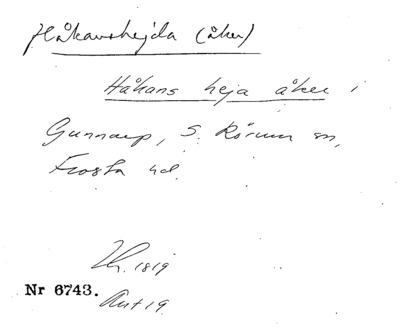 Håkanshejda (åker)
Håkans heja åker i
Gunnarp, S. Rörum sn,
Frosta hd.
1819
Nr 6743.